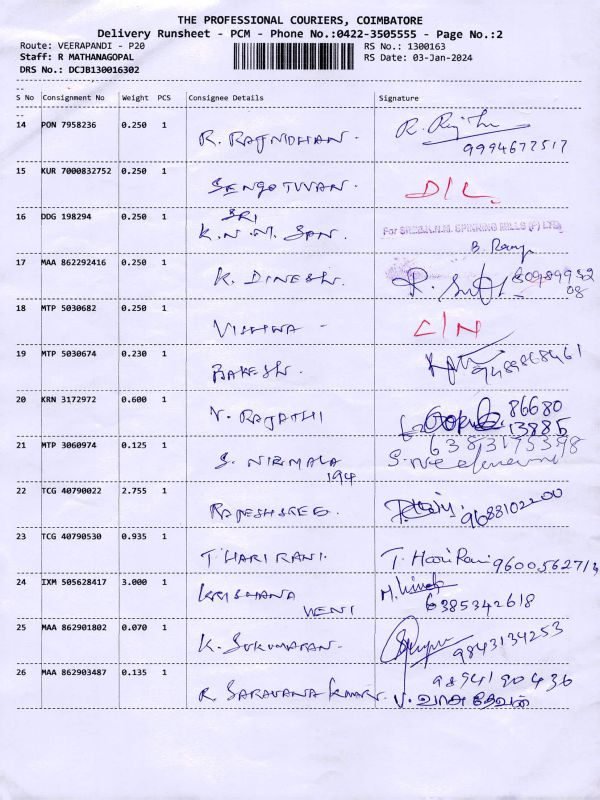 THE PROFESSIONAL COURIERS, COIMBATORE
Delivery Runsheet - PCM - Phone No.:0422-3505555 - Page No.:2
Route: VEERAPANDI - P20 RS No.: 1300163
Staff: R MATHANAGOPAL RS Date: 03-Jan-2024
DRS No.: DCJB130016302
S No Consignment No Weight PCS Consignee Details Signature
14 PON 7958236 0.250 1 R. RAJNDHAN.
9994677517
15 KUR 7000832752 0.250 1 SENGOTUVAN. D/L
16 DDG 198294 0.250 1 SRI
K.N.M. SPN. For SRI K.N.M. SPINNING MILLS (P) LTD
17 MAA 862292416 0.250 1 K. DINESH.
08
18 MTP 5030682 0.250 1 VISHWA - C/N
19 MTP 5030674 0.230 1 RAKESH. 9489868461
20 KRN 3172972 0.600 1 V. RAJATHI 86680
13885
21 MTP 3060974 0.125 1 S. NIRMALA 6383175398
194
22 TCG 40790022 2.755 1 RAJESHSREE. 9688102200
23 TCG 40790530 0.935 1 T HARI RANI. T. Hari Rani 9600562713
24 IXM 505628417 3.000 1 KRISHANA
VENI 6385342618
25 MAA 862901802 0.070 1 K. SUKUMARAN. 9843134253
26 MAA 862903487 0.135 1 R. SARAVANA KUMAR. 9894190436
V. வாசுதேவன்